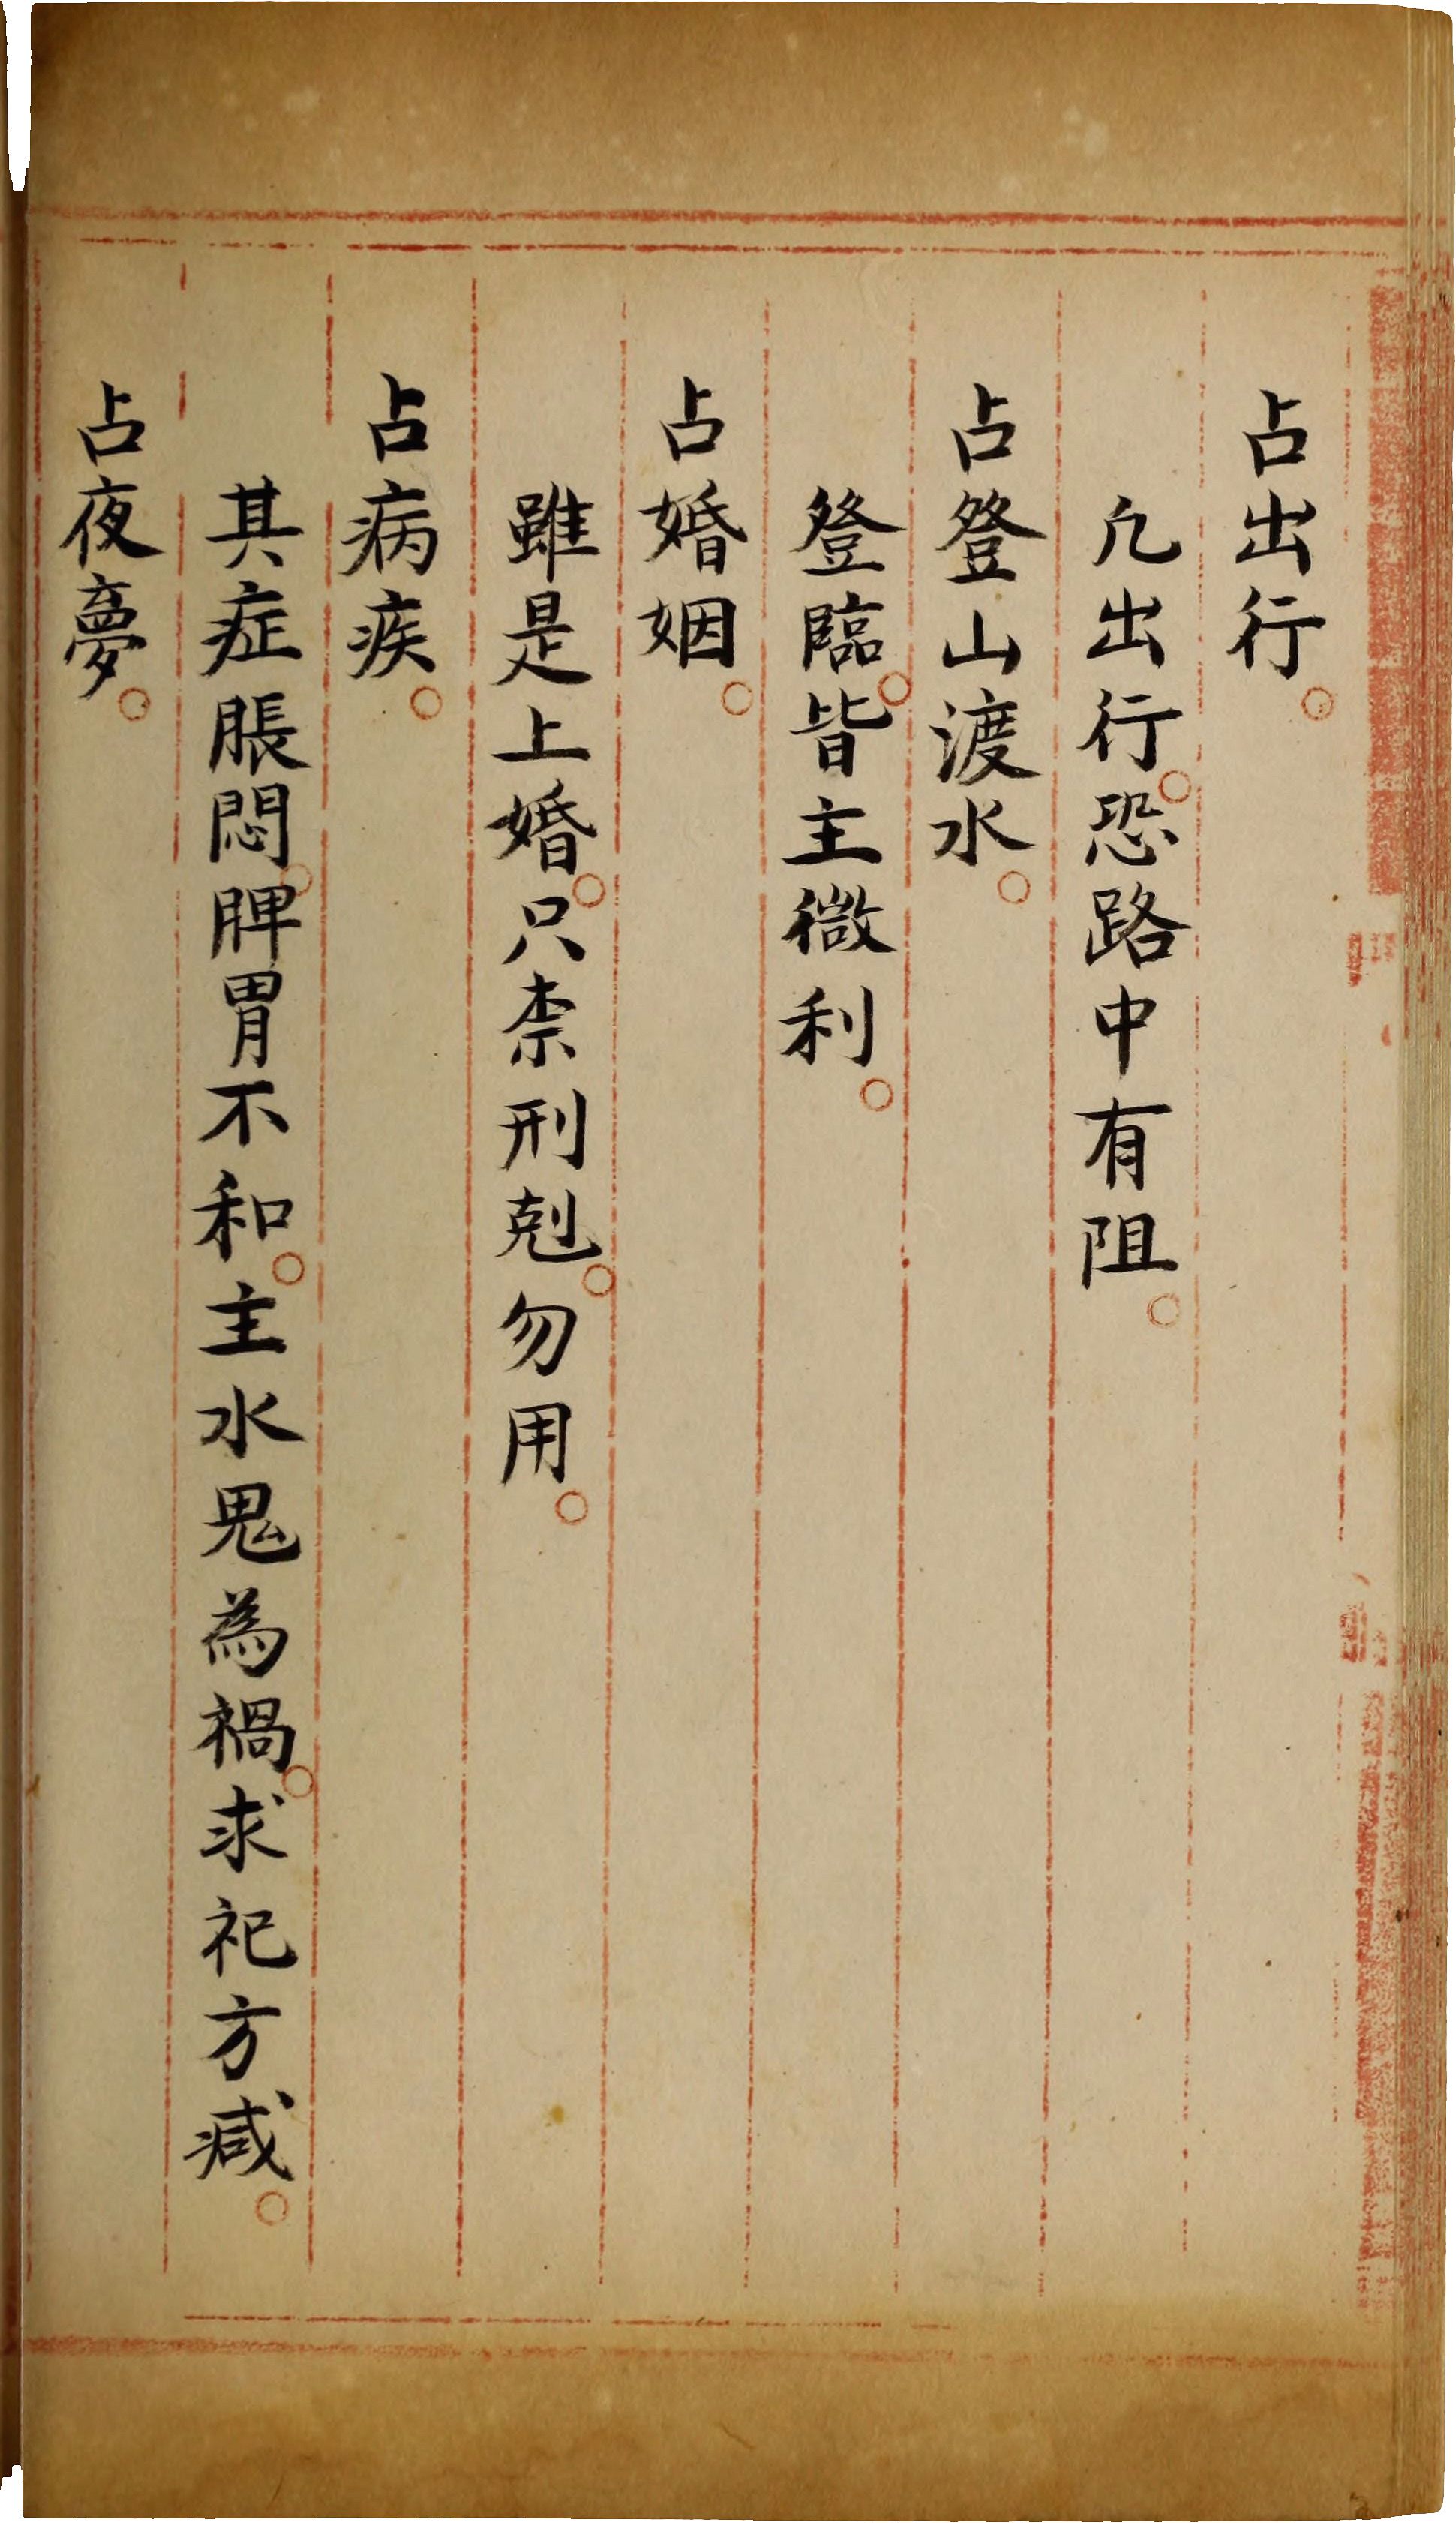 占出行。
凢出行。恐路中有阻。
占登山渡水。
登臨。皆主微利。
占婚姻。
雖是上婚。只柰刑剋。勿用。
占病疾。
其症脹悶。脾胃不和。主水鬼為禍。求祀方减。
占夜夢。